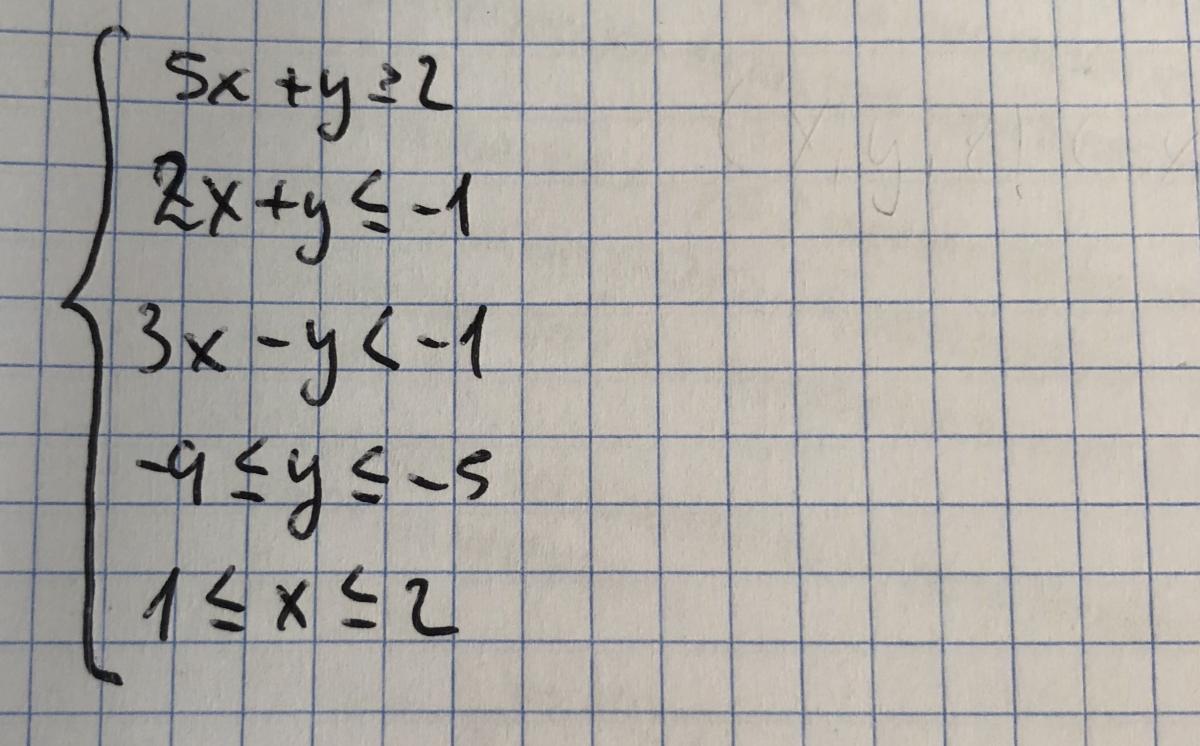 5x + y ≥ 2
2x + y ≤ -1
3x - y < -1
-9 ≤ y ≤ -5
1 ≤ x ≤ 2